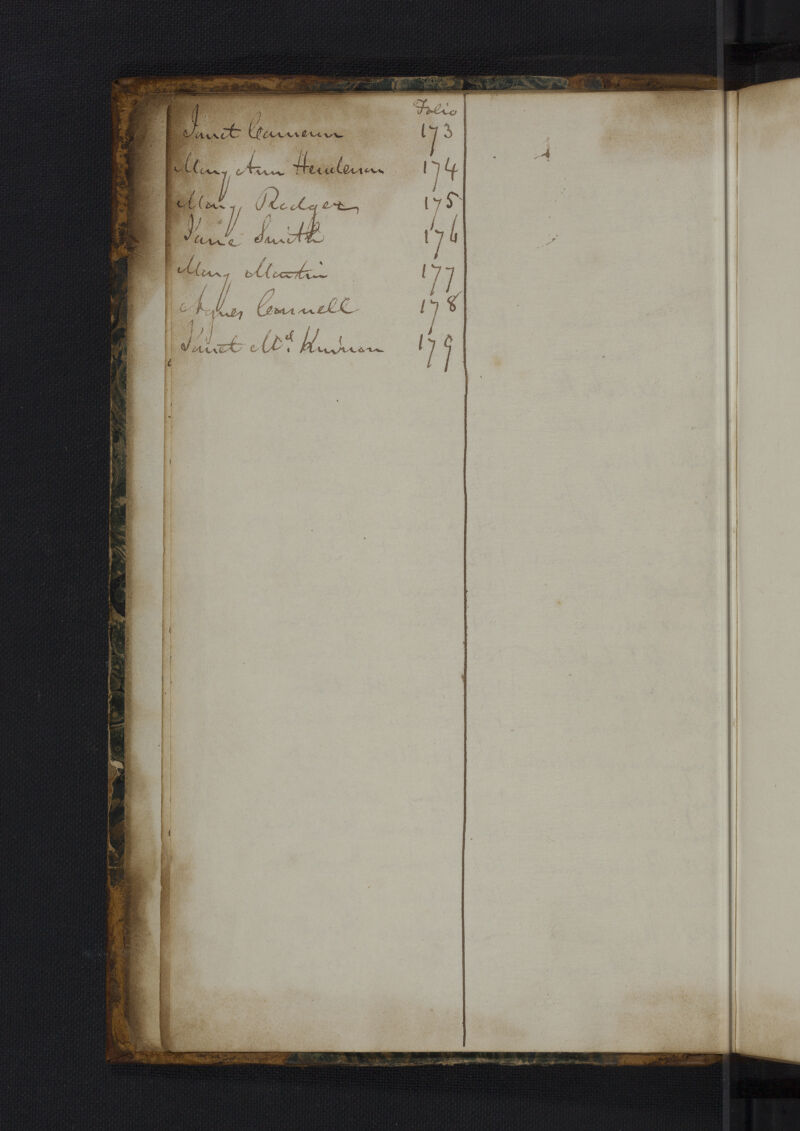 Folio
Janet Cameron 173
Mary Ann Henderson 174
Mary Rodger 175
Jane Smith 176
Mary Martin 177
Agnes Connell 178
Janet Mc. Kinnon 179